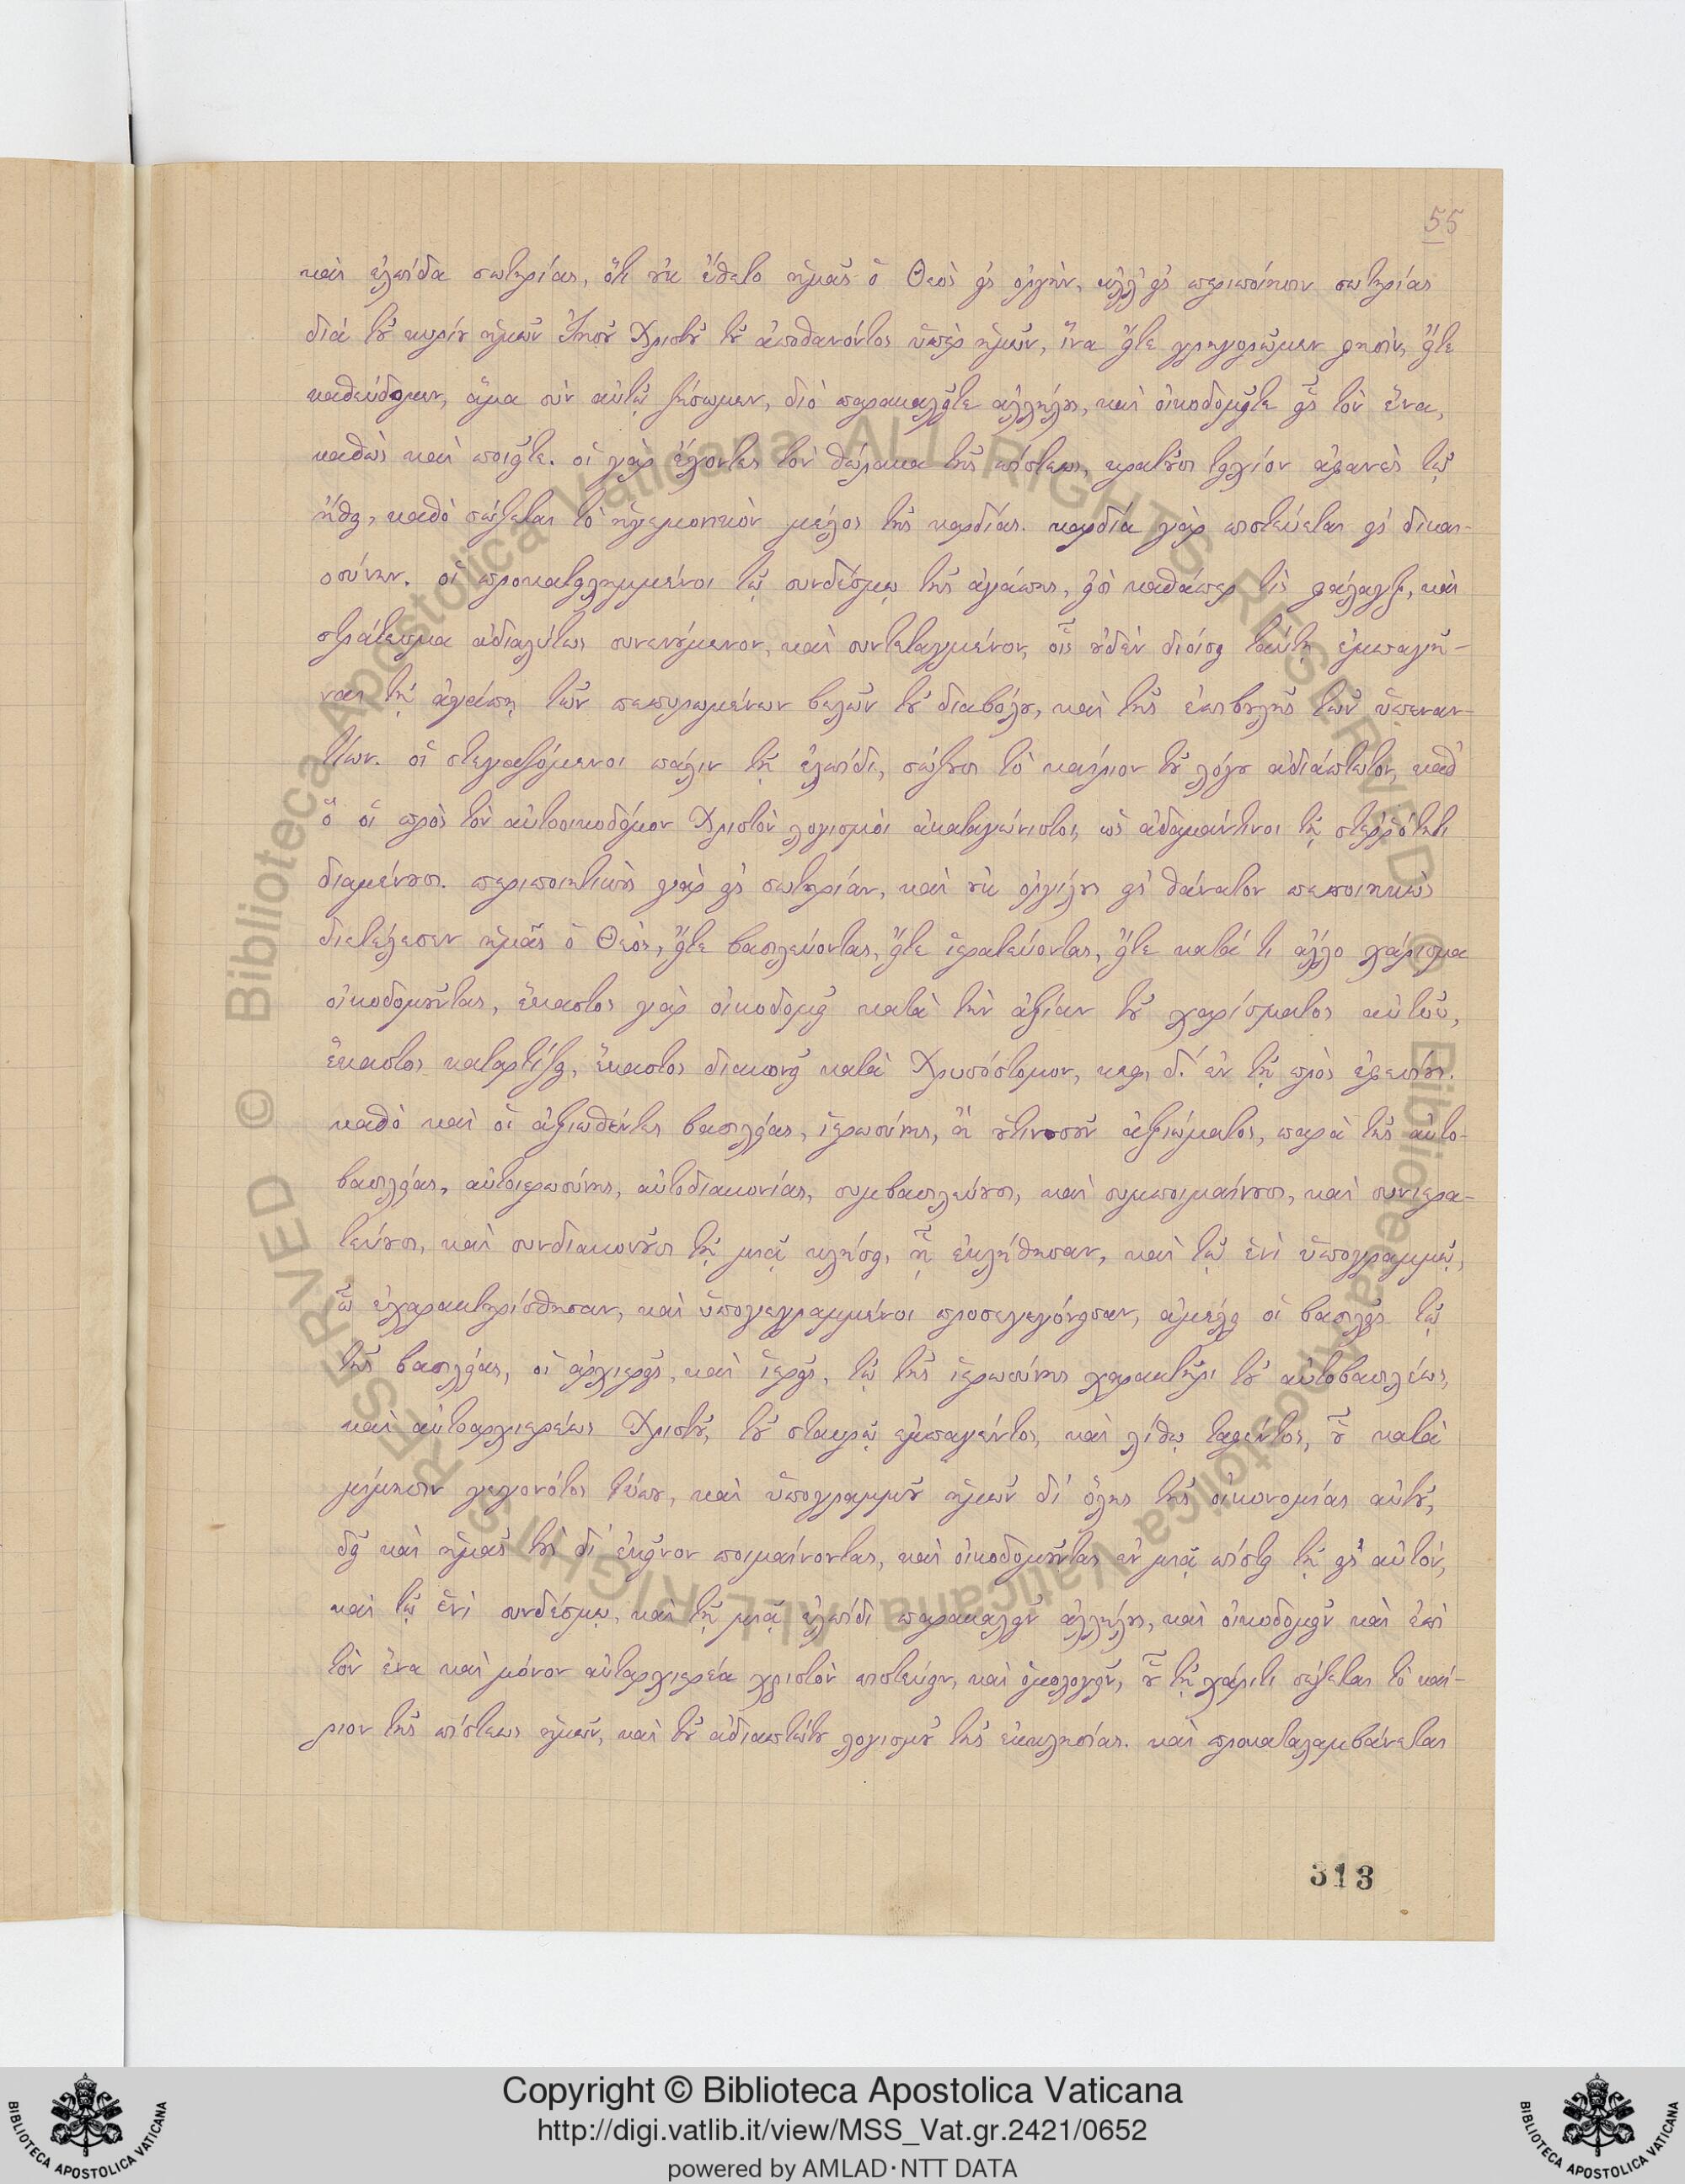 55
καὶ ἐλπίδα σωτηρίας, ὅτι οὐκ ἔθετο ἡμᾶς ὁ Θεὸς εἰς ὀργὴν, ἀλλ' εἰς περιποίησιν σωτηρίας
διὰ τοῦ κυρίου ἡμῶν Ἰησοῦ Χριστοῦ τοῦ ἀποθανόντος ὑπὲρ ἡμῶν, ἵνα εἴτε γρηγορῶμεν φησὶν, εἴτε
καθεύδομεν, ἅμα σὺν αὐτῷ ζήσωμεν, διὸ παρακαλεῖτε ἀλλήλους, καὶ οἰκοδομεῖτε εἷς τὸν ἕνα,
καθὼς καὶ ποιεῖτε. οἱ γὰρ ἔχοντες τὸν θώρακα τῆς πίστεως, κρατοῦσι τειχίον ἀφανὲς τῷ
ἤθει, καθὸ σώζεται τὸ ἡγεμονικὸν μέλος τῆς καρδίας. καρδία γὰρ πιστεύεται εἰς δικαι-
οσύνην. οἱ προκατειλημμένοι τῷ συνδέσμῳ τῆς ἀγάπης, εἰσὶ καθάπερ τὶς φάλαγξ, καὶ
στράτευμα ἀδιαλύτως συνενούμενον, καὶ συντεταγμένον, οἷς οὐδὲν διοίσει ταύτῃ ἐμπαγῆ-
ναι τῇ ἀγάπῃ τῶν πεπυρωμένων βελῶν τοῦ διαβόλου, καὶ τῆς ἐπιβουλῆς τῶν ὑπεναν-
τίων. οἱ στεγαζόμενοι πάλιν τῇ ἐλπίδι, σώζουσι τὸ καίριον τοῦ λόγου ἀδιάπτωτον, καθ'
ὃ οἱ πρὸς τὸν αὐτοοικοδόμον Χριστὸν λογισμοὶ ἀκαταγώνιστοι, ὡς ἀδαμάντινοι τῇ στεῤῥότητι
διαμένουσι. περιποιητικῶς γὰρ εἰς σωτηρίαν, καὶ οὐκ ὀργίλους εἰς θάνατον πεποιηκὼς
διετέλεσεν ἡμᾶς ὁ Θεὸς, εἴτε βασιλεύοντας, εἴτε ἱερατεύοντας, εἴτε κατά τι ἄλλο χάρισμα
οἰκοδομοῦντας, ἕκαστος γὰρ οἰκοδομεῖ κατὰ τὴν ἀξίαν τοῦ χαρίσματος αὐτοῦ,
ἕκαστος καταρτίζει, ἕκαστος διακονεῖ κατὰ Χρυσόστομον, κεφ. δ.' ἐν τῇ πρὸς ἐφεσίους.
καθὸ καὶ οἱ ἀξιωθέντες βασιλείας, ἱερωσύνης, ἢ οὑτινοσοῦν ἀξιώματος, παρὰ τῆς αὐτο-
βασιλείας, αὐτοιερωσύνης, αὐτοδιακονίας, συμβασιλεύουσι, καὶ συμποιμαίνουσι, καὶ συνιερα-
τεύουσι, καὶ συνδιακονοῦσι τῇ μιᾷ κλήσει, ᾗ ἐκλήθησαν, καὶ τῷ ἑνὶ ὑπογραμμῷ,
ᾧ ἐχαρακτηρίσθησαν, καὶ ὑπογεγραμμένοι προσεγεγόνεισαν, ἀμέλει οἱ βασιλεῖς τῷ
τῆς βασιλείας, οἱ ἀρχιερεῖς, καὶ ἱερεῖς, τῷ τῆς ἱερωσύνης χαρακτῆρι τοῦ αὐτοβασιλέως,
καὶ αὐτοαρχιερέως Χριστοῦ, τοῦ σταυρῷ ἐμπαγέντος, καὶ λίθῳ ταφέντος, οὗ κατὰ
μίμησιν γεγονότος τύπου, καὶ ὑπογραμμοῦ ἡμῶν δι' ὅλης τῆς οἰκονομίας αὐτοῦ,
δεῖ καὶ ἡμᾶς τοὺς δι' ἐκεῖνον ποιμαίνοντας, καὶ οἰκοδομοῦντας ἐν μιᾷ πίστει τῇ εἰς αὐτόν,
καὶ τῷ ἑνὶ συνδέσμῳ, καὶ τῇ μιᾷ ἐλπίδι παρακαλεῖν ἀλλήλους, καὶ οἰκοδομεῖν καὶ ἐπὶ
τὸν ἕνα καὶ μόνον αὐταρχιερέα χριστὸν πιστεύειν, καὶ ὁμολογεῖν, οὗ τῇ χάριτι σώζεται τὸ καί-
ριον τῆς πίστεως ἡμῶν, καὶ τοῦ ἀδιαπτώτου λογισμοῦ τῆς ἐκκλησίας. καὶ προκαταλαμβάνεται
313
© Biblioteca Apostolica Vaticana ALL RIGHTS RESERVED
© Biblioteca Apostolica Vaticana ALL RIGHTS RESERVED
Copyright © Biblioteca Apostolica Vaticana
http://digi.vatlib.it/view/MSS_Vat.gr.2421/0652
powered by AMLAD·NTT DATA
BIBLIOTECA APOSTOLICA VATICANA
BIBLIOTECA APOSTOLICA VATICANA